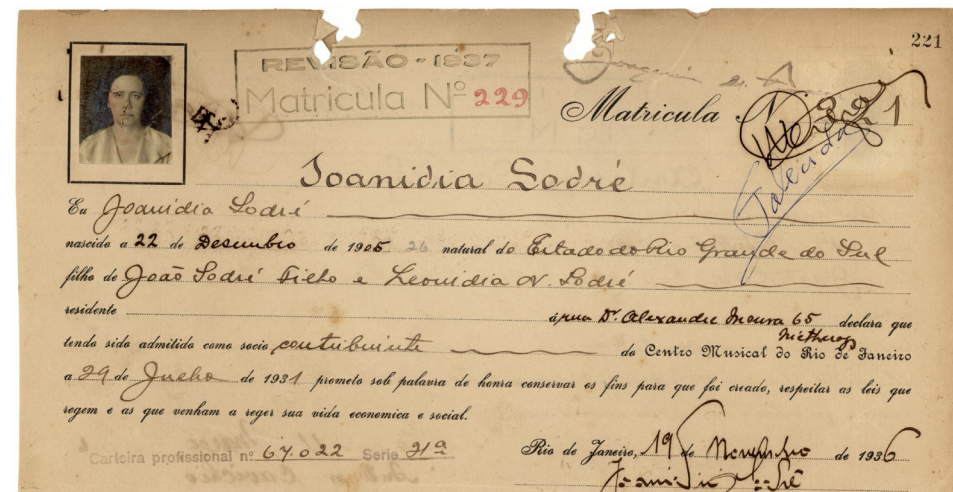 221
REVISÃO - 1937
Matricula Nº 229
Matricula N 1
Falecida
Joanidia Sodré
Eu Joanidia Sodré
nascido a 22 de Desembro de 1905 26 natural do Estado do Rio Grande do Sul
filho de João Sodré Filho e Leonidia N. Sodré
residente á rua Dr. Alexandre Moura 65 declara que
Nictheroy
tendo sido admitido como socio contribuinte do Centro Musical do Rio de Janeiro
a 29 de Junho de 1931 prometo sob palavra de honra conservar os fins para que foi creado, respeitar as leis que
regem e as que venham a reger sua vida economica e social.
Carteira profissional nº 67.022 Serie 21ª
Rio de Janeiro, 19 de Novembro de 1936
Joanidia Sodré